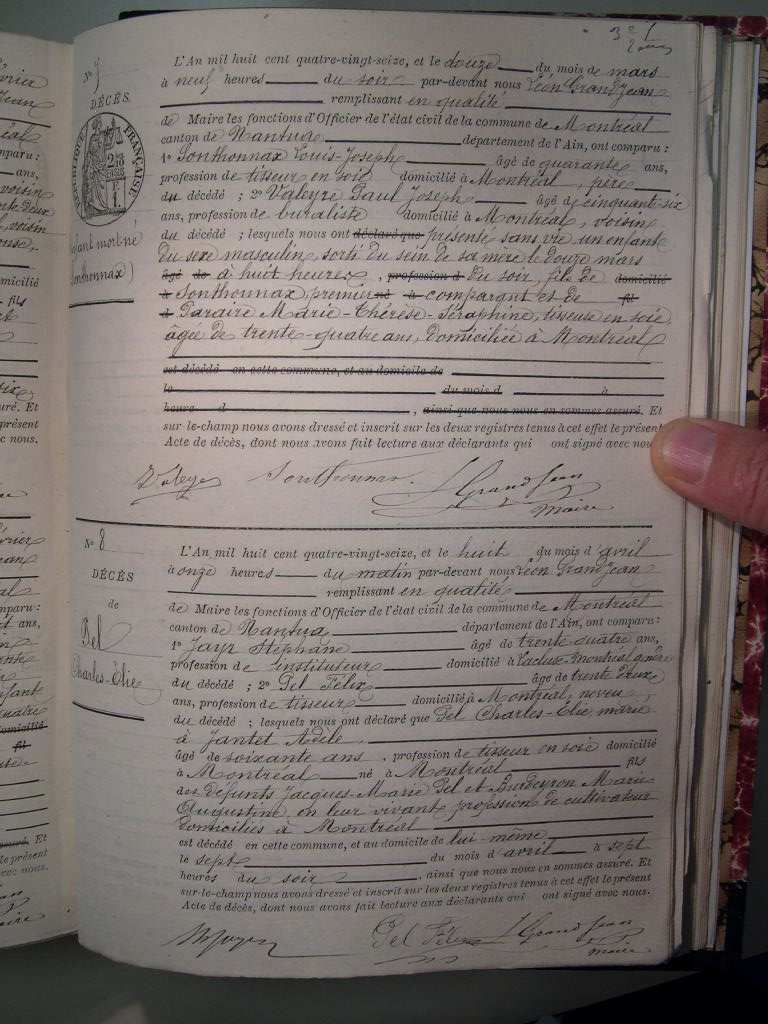 N° 7
DÉCÈS
RÉPUBLIQUE FRANÇAISE
(enfant mort-né
Sonthonnax)
L'An mil huit cent quatre-vingt-seize, et le douze du mois de mars
à neuf heures du soir par-devant nous Léon Grandjean
remplissant en qualité
de Maire les fonctions d'Officier de l'état civil de la commune de Montréal
canton de Nantua département de l'Ain, ont comparu :
1° Sonthonnax Louis-Joseph âgé de quarante ans,
profession de tisseur en soie domicilié à Montréal, père
du décédé ; 2° Valeyre Paul Joseph âgé de cinquante-six
ans, profession de buraliste domicilié à Montréal, voisin
du décédé ; lesquels nous ont déclaré que présenté sans vie un enfant
du sexe masculin, sorti du sein de sa mère le douze mars
âgé de à huit heures, profession d du soir, fils de domicilié
à Sonthonnax premier né à comparant et de fil
d Paraire Marie-Thérèse-Séraphine, tisseuse en soie,
âgée de trente-quatre ans, domiciliée à Montréal
est décédé en cette commune, et au domicile de
le du mois d à
heure d , ainsi que nous nous en sommes assuré. Et
sur-le-champ nous avons dressé et inscrit sur les deux registres tenus à cet effet le présent
Acte de décès, dont nous avons fait lecture aux déclarants qui ont signé avec nous.
Valeyre Sonthonnax L Grandjean
Maire
N° 8
DÉCÈS
de
Pel
Charles-Élie
L'An mil huit cent quatre-vingt-seize, et le huit du mois d'avril
à onze heures du matin par-devant nous Léon Grandjean
remplissant en qualité
de Maire les fonctions d'Officier de l'état civil de la commune de Montréal
canton de Nantua département de l'Ain, ont comparu :
1° Jayr Stéphane âgé de trente quatre ans,
profession de instituteur domicilié à Lacluse-Montréal, gendre
du décédé ; 2° Pel Félix âgé de trente deux
ans, profession de tisseur domicilié à Montréal, neveu
du décédé ; lesquels nous ont déclaré que Pel Charles-Élie, marié
à Jantet Adèle,
âgé de soixante ans, profession de tisseur en soie domicilié
à Montréal né à Montréal fils
des défunts Jacques-Marie Pel et Burdeyron Marie
Augustine, en leur vivant profession de cultivateur
domiciliés à Montréal
est décédé en cette commune, et au domicile de lui-même
le sept du mois d'avril à sept
heures du soir, ainsi que nous nous en sommes assuré. Et
sur-le-champ nous avons dressé et inscrit sur les deux registres tenus à cet effet le présent
Acte de décès, dont nous avons fait lecture aux déclarants qui ont signé avec nous.
Pel Félix L Grandjean
Maire